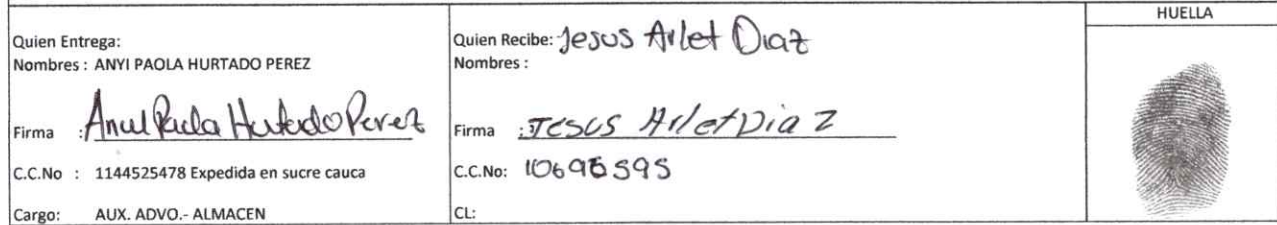 HUELLA
Quien Entrega:
Nombres : ANYI PAOLA HURTADO PEREZ
Firma : Anyi Paola Hurtado Perez
C.C.No : 1144525478 Expedida en sucre cauca
Cargo: AUX. ADVO.- ALMACEN
Quien Recibe: Jesus Arlet Diaz
Nombres :
Firma : Jesus Arlet Diaz
C.C.No: 10696595
CL: